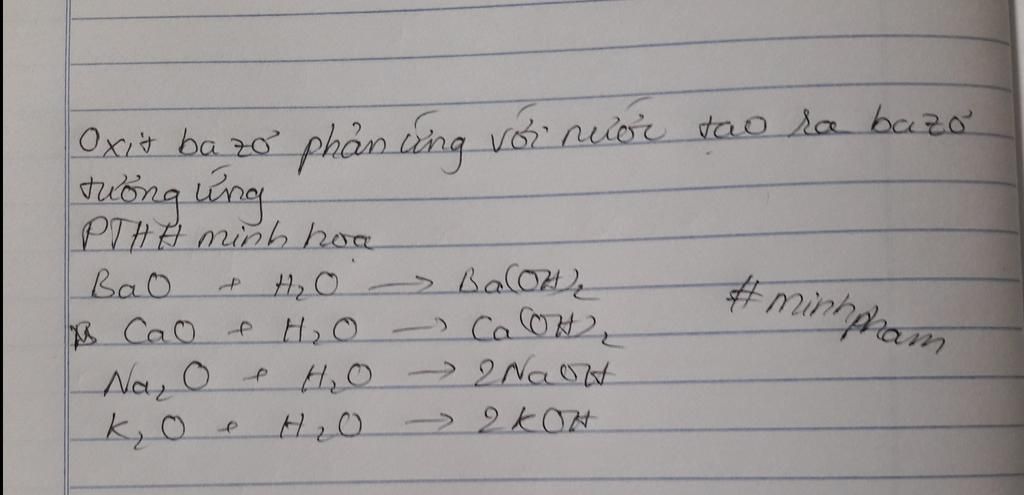 Oxit bazơ phản ứng với nước tạo ra bazơ
tương ứng
PTHH minh họa
BaO + H₂O → Ba(OH)₂
CaO + H₂O → Ca(OH)₂
Na₂O + H₂O → 2NaOH
K₂O + H₂O → 2KOH
#minhpham